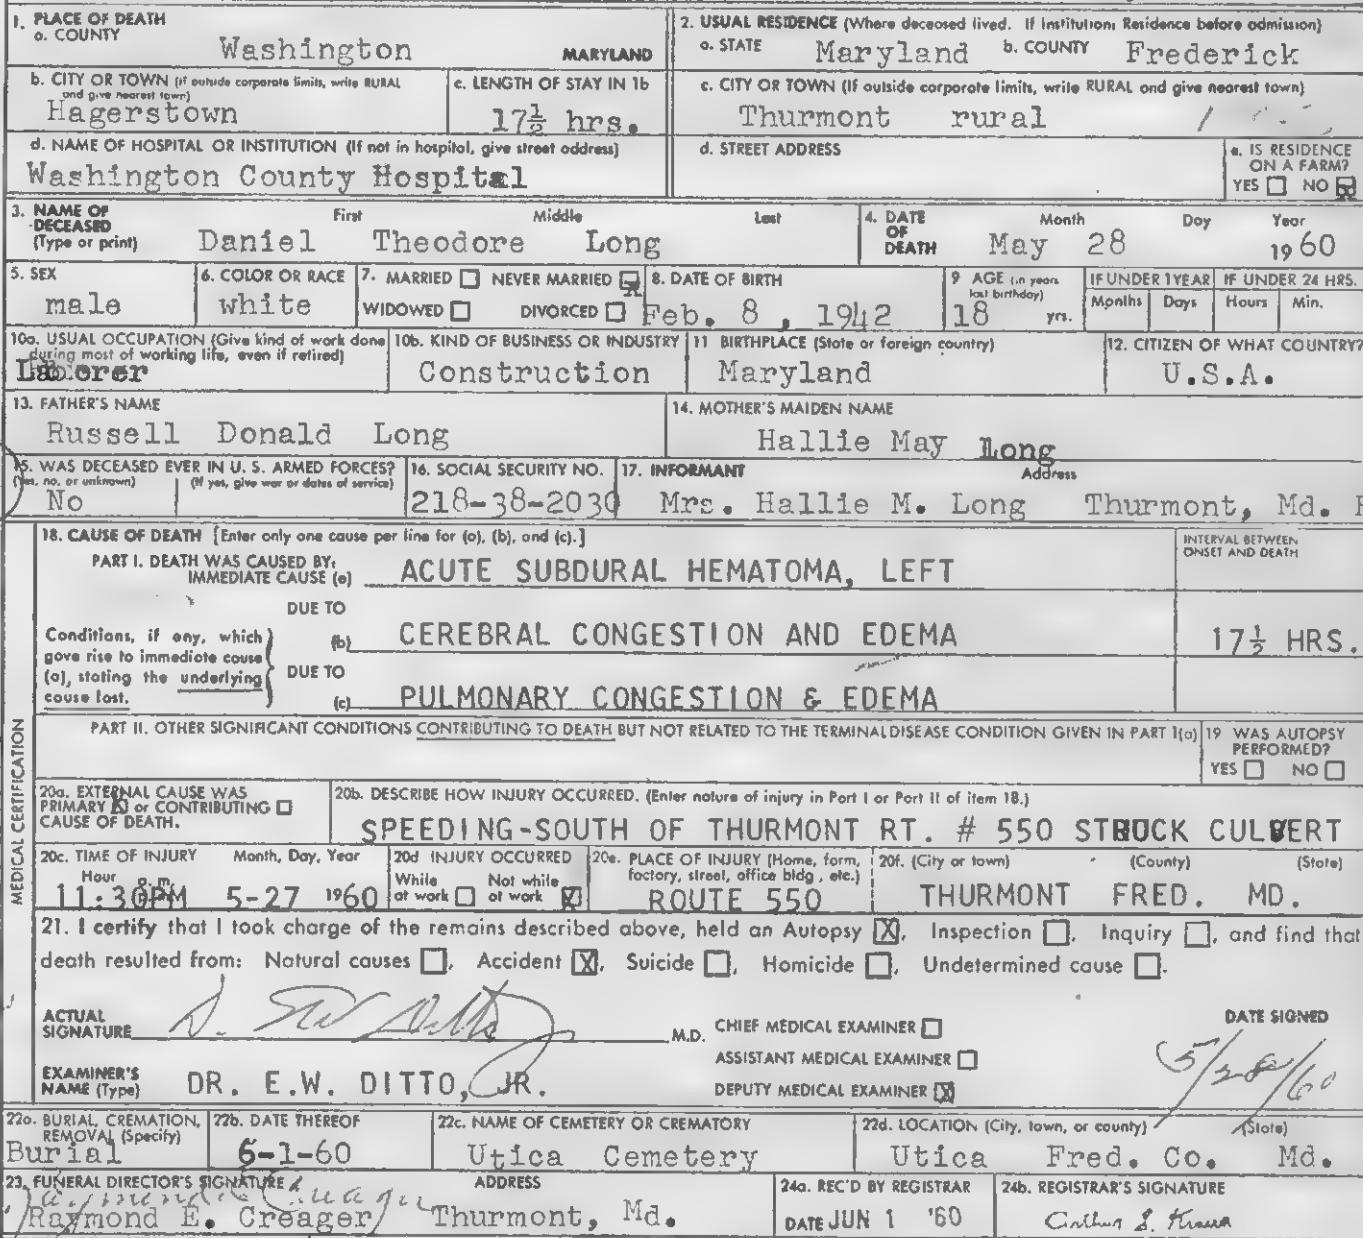 1. PLACE OF DEATH
a. COUNTY
Washington MARYLAND
2. USUAL RESIDENCE (Where deceased lived. If institution: Residence before admission)
a. STATE Maryland b. COUNTY Frederick
b. CITY OR TOWN (If outside corporate limits, write RURAL and give nearest town)
Hagerstown
c. LENGTH OF STAY IN 1b
17½ hrs.
c. CITY OR TOWN (If outside corporate limits, write RURAL and give nearest town)
Thurmont rural
d. NAME OF HOSPITAL OR INSTITUTION (If not in hospital, give street address)
Washington County Hospital
d. STREET ADDRESS
e. IS RESIDENCE ON A FARM?
YES NO X
3. NAME OF DECEASED (Type or print)
First Middle Last
Daniel Theodore Long
4. DATE OF DEATH
Month Day Year
May 28 1960
5. SEX
male
6. COLOR OR RACE
white
7. MARRIED NEVER MARRIED X
WIDOWED DIVORCED
8. DATE OF BIRTH
Feb. 8 , 1942
9 AGE (in years last birthday)
18 yrs.
IF UNDER 1 YEAR IF UNDER 24 HRS.
Months Days Hours Min.
10a. USUAL OCCUPATION (Give kind of work done during most of working life, even if retired)
Laborer
10b. KIND OF BUSINESS OR INDUSTRY
Construction
11 BIRTHPLACE (State or foreign country)
Maryland
12. CITIZEN OF WHAT COUNTRY?
U.S.A.
13. FATHER'S NAME
Russell Donald Long
14. MOTHER'S MAIDEN NAME
Hallie May Long
15. WAS DECEASED EVER IN U. S. ARMED FORCES?
(Yes, no, or unknown) (If yes, give war or dates of service)
No
16. SOCIAL SECURITY NO.
218-38-2030
17. INFORMANT Address
Mrs. Hallie M. Long Thurmont, Md.
MEDICAL CERTIFICATION
18. CAUSE OF DEATH [Enter only one cause per line for (a), (b), and (c).]
INTERVAL BETWEEN ONSET AND DEATH
PART I. DEATH WAS CAUSED BY:
IMMEDIATE CAUSE (a) ACUTE SUBDURAL HEMATOMA, LEFT
DUE TO
Conditions, if any, which gave rise to immediate cause (a), stating the underlying cause last.
(b) CEREBRAL CONGESTION AND EDEMA 17½ HRS.
DUE TO
(c) PULMONARY CONGESTION & EDEMA
PART II. OTHER SIGNIFICANT CONDITIONS CONTRIBUTING TO DEATH BUT NOT RELATED TO THE TERMINAL DISEASE CONDITION GIVEN IN PART I(a)
19 WAS AUTOPSY PERFORMED?
YES NO
20a. EXTERNAL CAUSE WAS
PRIMARY X or CONTRIBUTING
CAUSE OF DEATH.
20b. DESCRIBE HOW INJURY OCCURRED. (Enter nature of injury in Part I or Part II of item 18.)
SPEEDING-SOUTH OF THURMONT RT. # 550 STRUCK CULVERT
20c. TIME OF INJURY Month, Day, Year
Hour a.m. p.m.
11:30PM 5-27 1960
20d INJURY OCCURRED
While at work Not while at work X
20e. PLACE OF INJURY (Home, farm, factory, street, office bldg., etc.)
ROUTE 550
20f. (City or town) (County) (State)
THURMONT FRED. MD.
21. I certify that I took charge of the remains described above, held an Autopsy X, Inspection , Inquiry , and find that
death resulted from: Natural causes , Accident X, Suicide , Homicide , Undetermined cause .
ACTUAL SIGNATURE M.D.
CHIEF MEDICAL EXAMINER
ASSISTANT MEDICAL EXAMINER
DEPUTY MEDICAL EXAMINER X
DATE SIGNED
5/28/60
EXAMINER'S NAME (Type) DR. E.W. DITTO, JR.
22a. BURIAL, CREMATION, REMOVAL (Specify)
Burial
22b. DATE THEREOF
6-1-60
22c. NAME OF CEMETERY OR CREMATORY
Utica Cemetery
22d. LOCATION (City, town, or county) (State)
Utica Fred. Co. Md.
23. FUNERAL DIRECTOR'S SIGNATURE ADDRESS
Raymond E. Creager
Raymond E. Creager Thurmont, Md.
24a. REC'D BY REGISTRAR
DATE JUN 1 '60
24b. REGISTRAR'S SIGNATURE